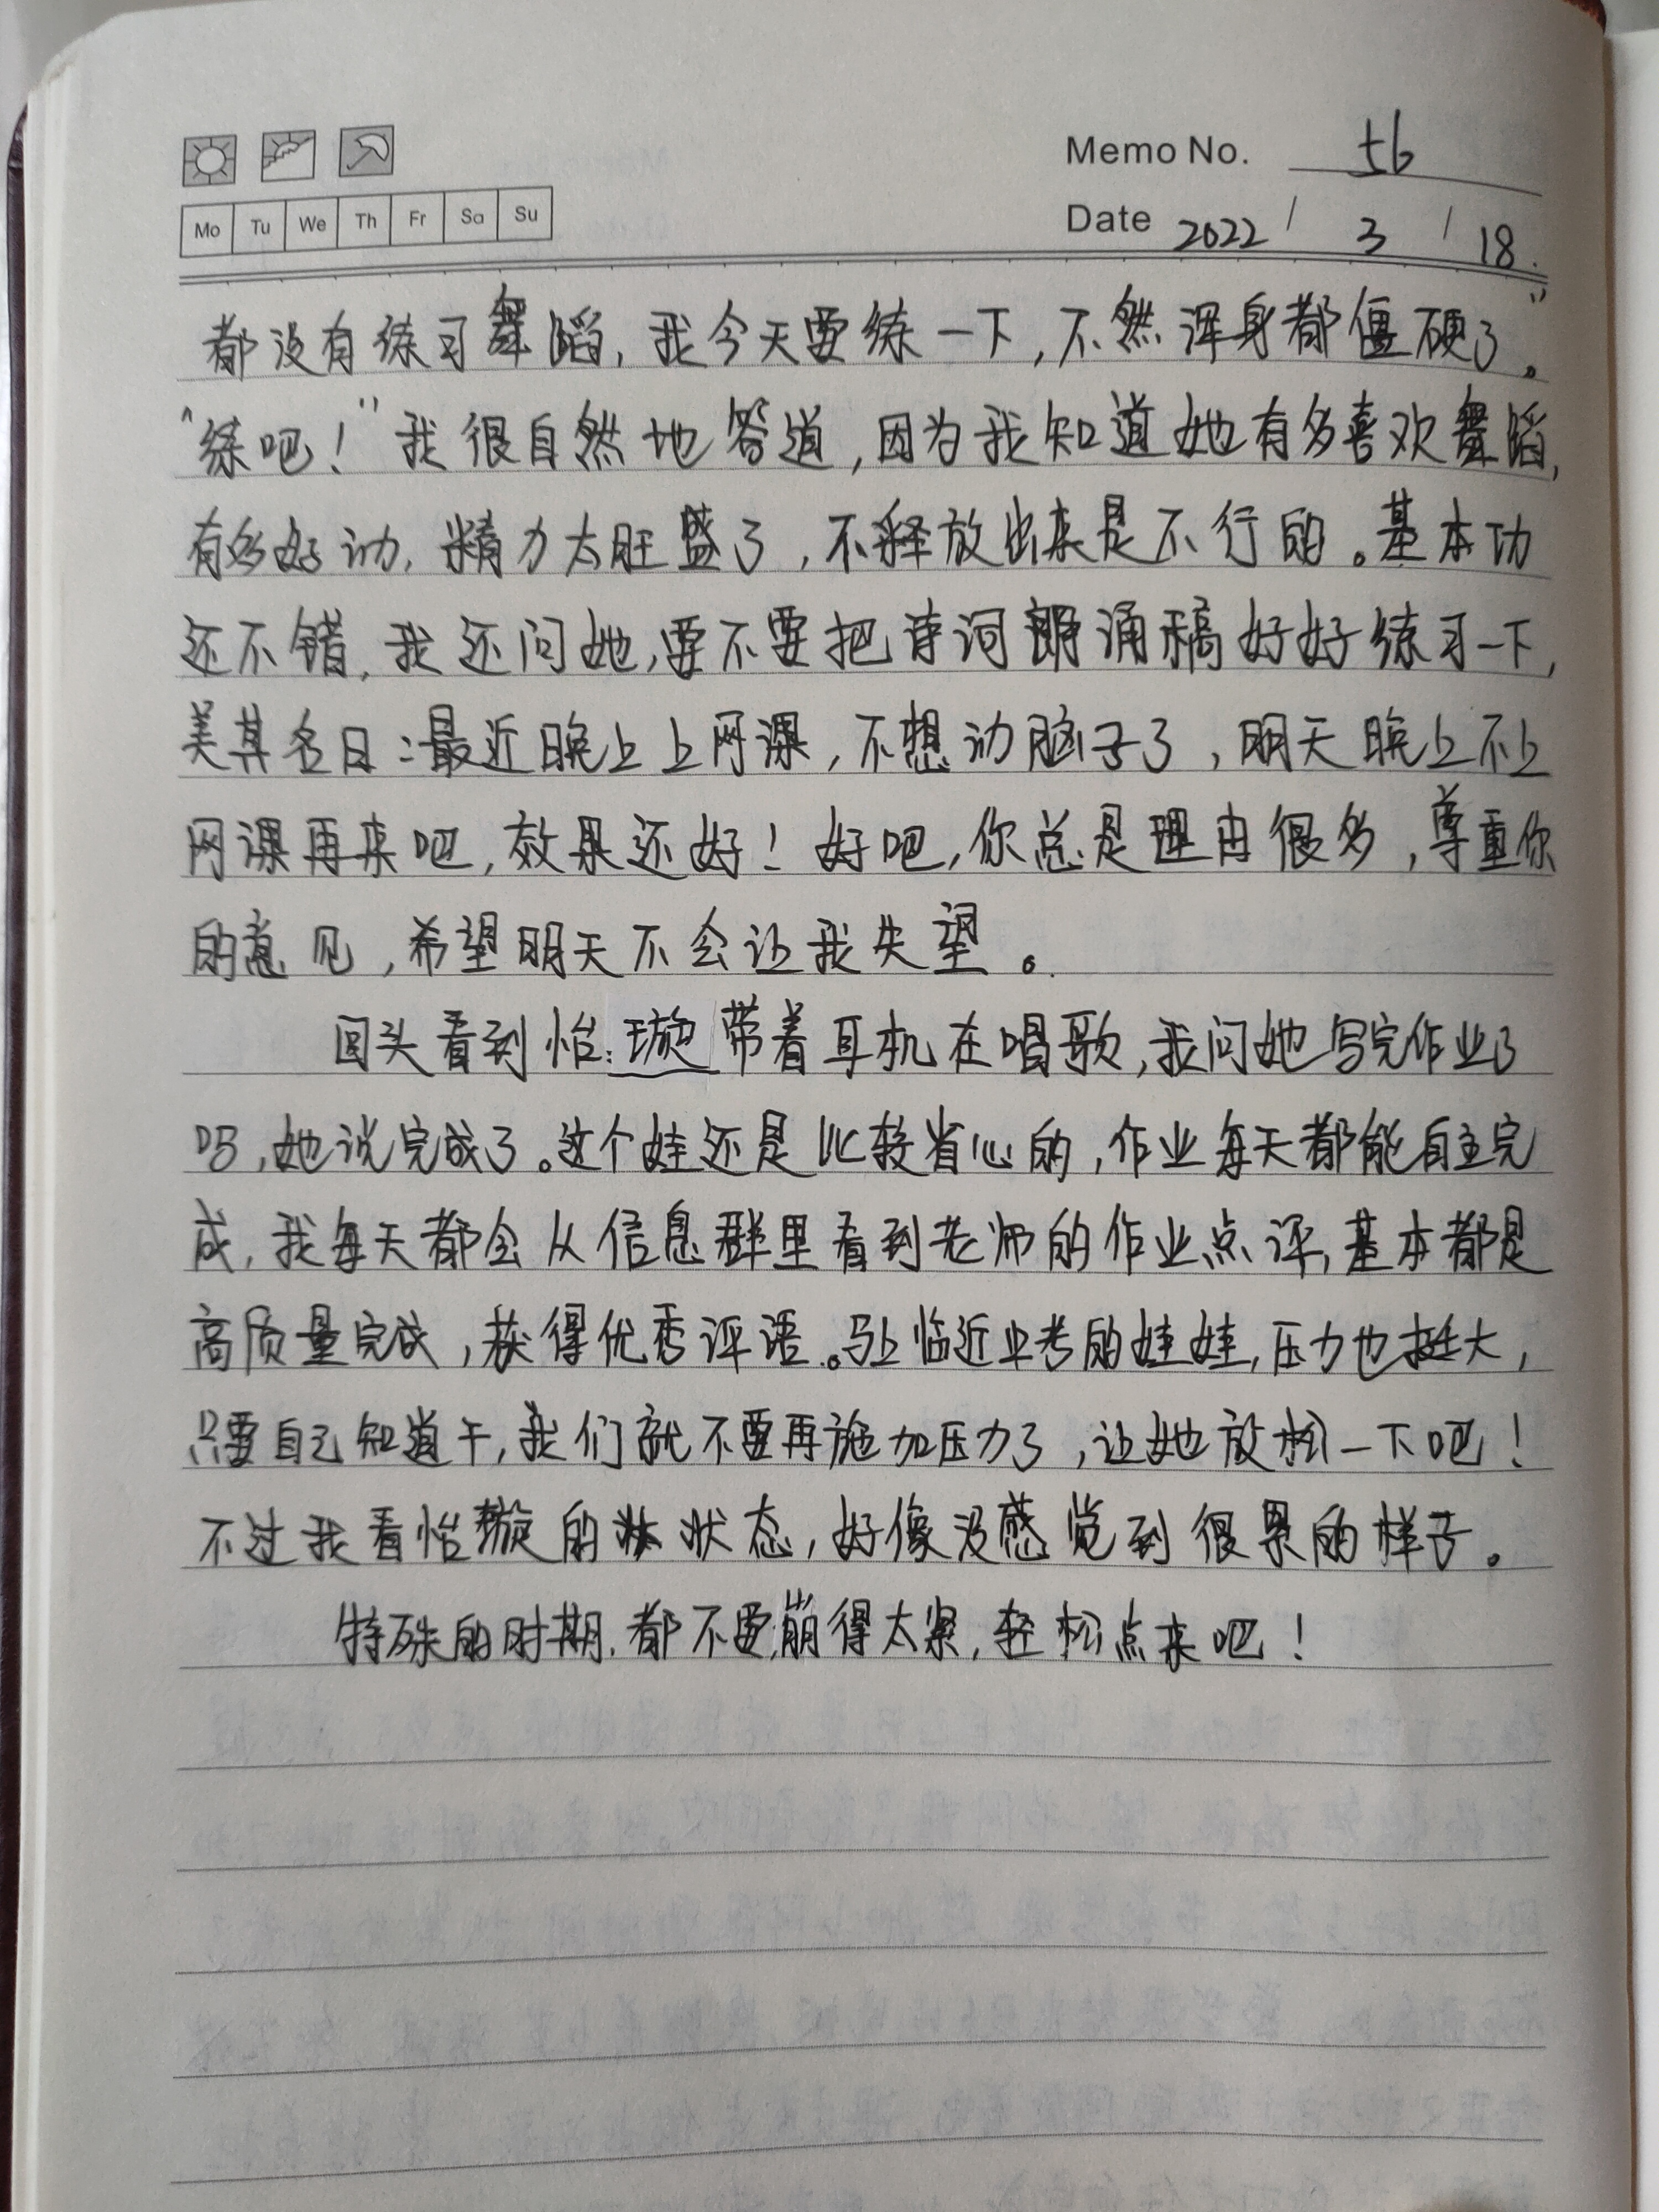 Memo No. 56
Mo Tu We Th Fr Sa Su
Date 2022 / 3 / 18.
都没有练习舞蹈，我今天要练一下，不然浑身都僵硬了。”
“练吧！”我很自然地答道，因为我知道她有多喜欢舞蹈，
有多好动，精力太旺盛了，不释放出来是不行的。基本功
还不错，我还问她，要不要把诗词朗诵稿好好练习一下，
美其名曰：最近晚上上网课，不想动脑子了，明天晚上不上
网课再来吧，效果还好！好吧，你总是理由很多，尊重你
的意见，希望明天不会让我失望。
回头看到怡璇带着耳机在唱歌，我问她写完作业了
吗，她说完成了。这个娃还是比较省心的，作业每天都能自主完
成，我每天都会从信息群里看到老师的作业点评，基本都是
高质量完成，获得优秀评语。马上临近中考的娃娃，压力也挺大，
只要自己知道干，我们就不要再施加压力了，让她放松一下吧！
不过我看怡璇的状态，好像没感觉到很累的样子。
特殊的时期，都不要崩得太紧，轻松点来吧！